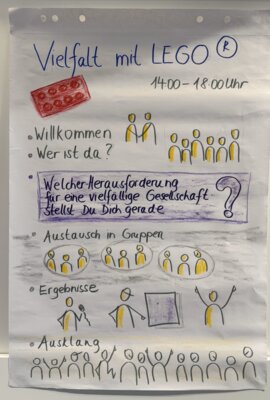 Vielfalt mit LEGO ®
14:00 - 18:00 Uhr
• Willkommen
• Wer ist da?
• Welcher Herausforderung
für eine vielfältige Gesellschaft
stellst Du Dich gerade
?
• Austausch in Gruppen
• Ergebnisse
• Ausklang